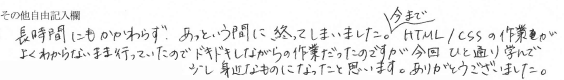 その他自由記入欄
長時間にもかかわらず あっという間に終ってしまいました。今までHTML/CSSの作業が
よくわからないまま行っていたのでドキドキしながらの作業だったのですが今回ひと通り学んで
少し身近なものになったと思います。ありがとうございました。